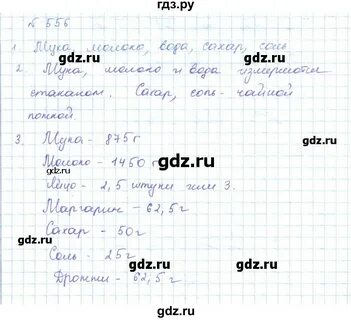 гдз.ру
№ 556
1. Мука, молоко, вода, сахар, соль
2. Мука, молоко и вода измеряются
стаканом. Сахар, соль - чайной
ложкой.
gdz.ru gdz.ru
3. Мука - 875 г
Молоко - 1450 г
gdz.ru
Яйцо - 2,5 штуки или 3.
Маргарин - 62,5 г
gdz.ru
Сахар - 50г
Соль - 25г
gdz.ru
Дрожжи - 62,5 г
gdz.ru